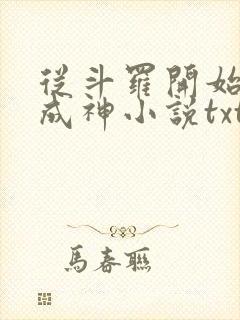 從斗羅開始
成神小說txt
馬春聯